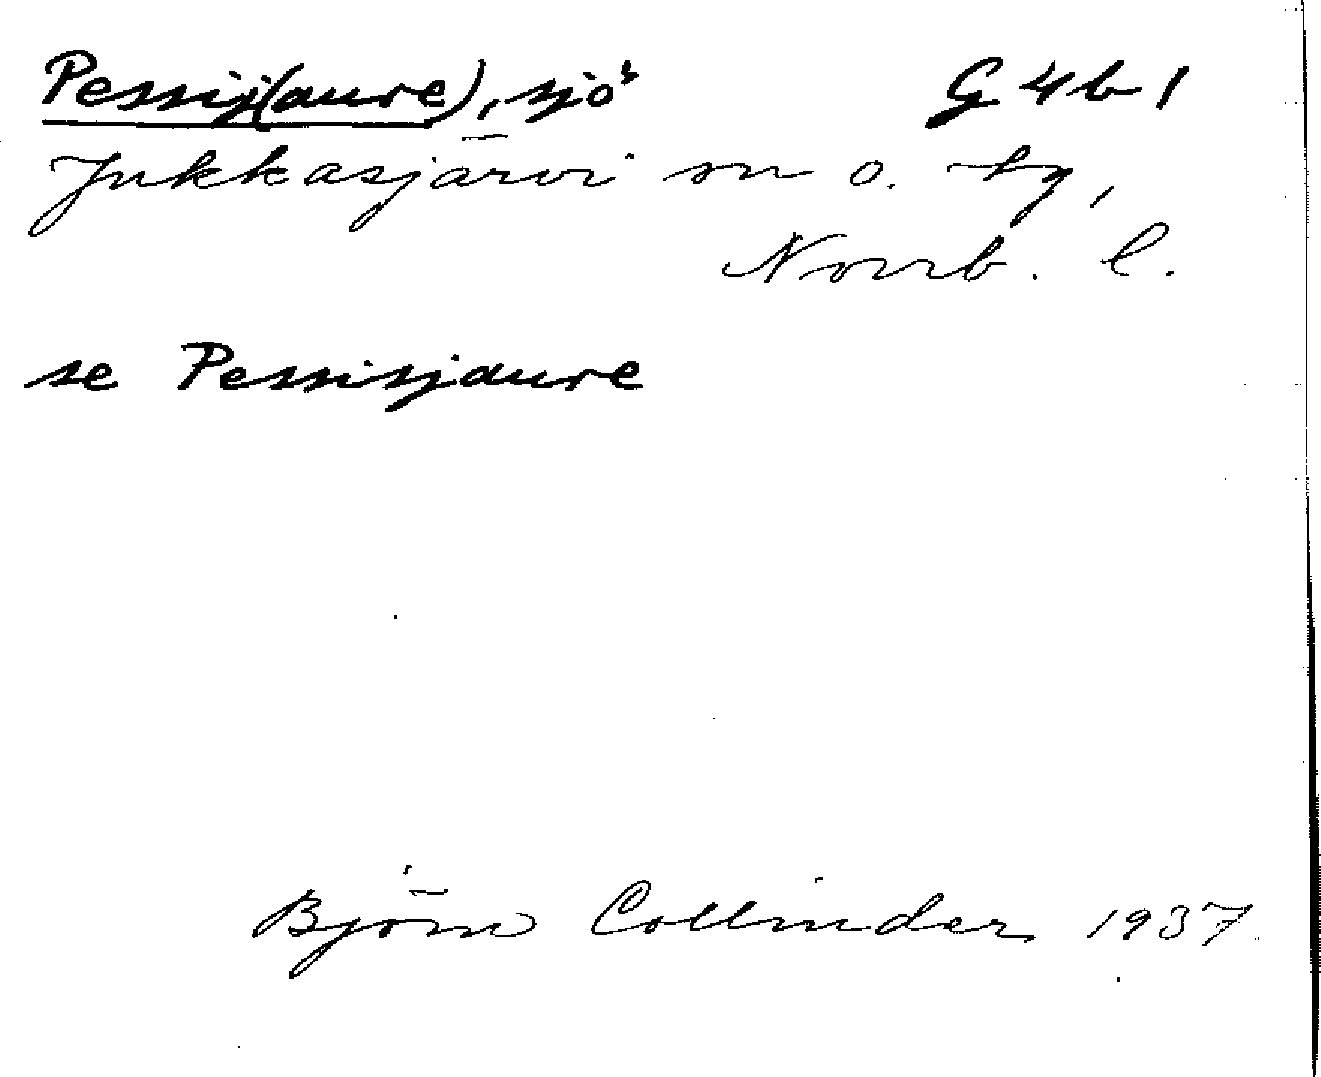 Pessij(aure), sjö G 4b 1
Jukkasjärvi sn o. tg,
Norrb. l.
se Pessisjaure
Björn Collinder 1937